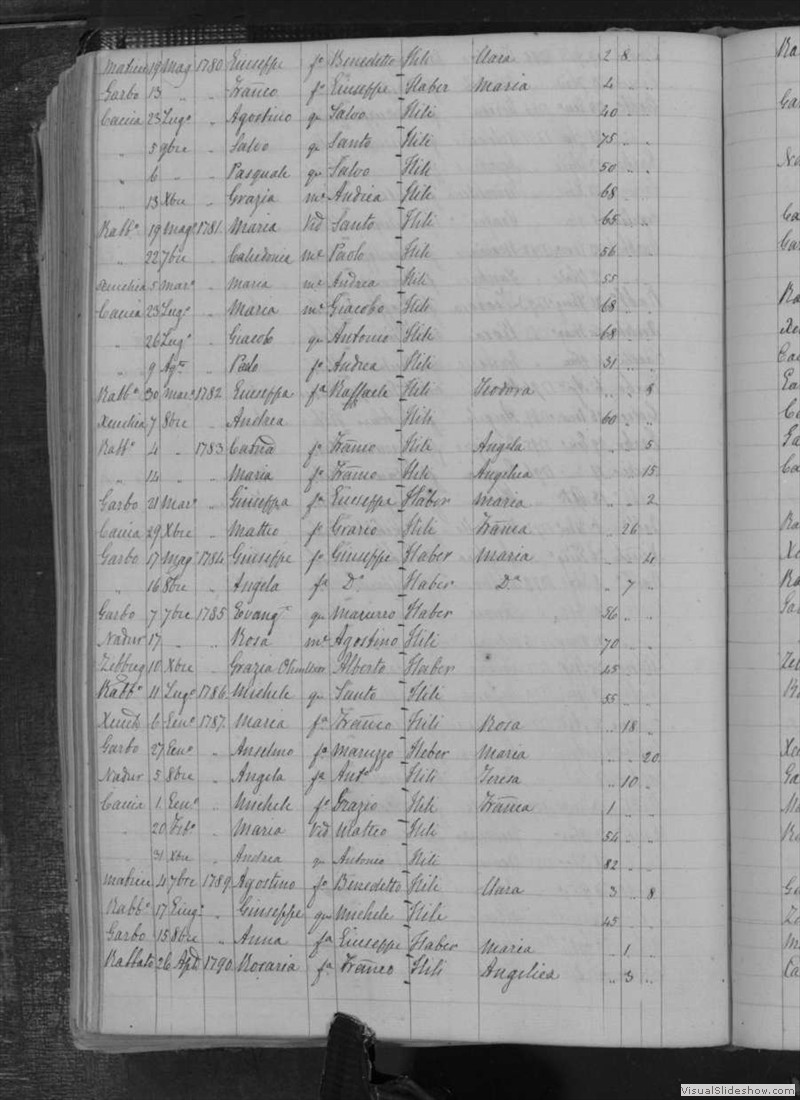 Matrice 19 Mag 1780 Giuseppe fo Benedetto Stili Clara 2 8 "
Garbo 13 " " Franco fo Giuseppe Haber Maria 4 " "
Caccia 23 Lugo " Agostino qu Salvo Stili 40 " "
" 5 9bre " Salvo qu Santo Stili 75 " "
" 6 " " Pasquale qu Salvo Stili 50 " "
" 13 Xbre " Grazia me Andrea Stili 68 " "
Rabbo 19 Mago 1781 Maria Vid Santo Stili 65 " "
" 22 7bre " Calcidonia me Paolo Stili 56 " "
Xeuchia 5 Maro " Maria me Andrea Stili 55
Caccia 23 Lugo " Maria me Giacobo Stili 68 " "
" 26 Lugo " Giacob qu Antonio Stili 68 " "
" 9 Agto " Paolo fo Andrea Stili 31 " "
Rabbo 30 Maro 1782 Giuseppa fa Raffaele Stili Teodora " " 3
Xeuchia 7 8bre " Andrea Stili 60 " "
Rabbo 4 " 1783 fo Franco Stili Angela " " 5
" 14 " " Maria fa Franco Stili Angelica " " 15
Garbo 21 Maro " Giuseppa fa Giuseppe Haber Maria " " 2
Caccia 29 Xbre " Matteo fo Grazio Stili Franca " 26 "
Garbo 17 Mago 1784 Giuseppe fo Giuseppe Haber Maria " " 4
" 16 8bre " Angela fa Do Haber Da " 7 "
Garbo 7 7bre 1785 Evang qu Haber 56 " "
Nadur 17 " " Rosa me Agostino Stili 70 " "
Zebbug 10 Xbre " Grazia Alberto Haber 45 " "
Rabbo 11 Lugo 1786 Michele qu Santo Stili 55 " "
Xeuch 6 Geno 1787 Maria fa Franco Stili Rosa " 18 "
Garbo 27 Geno " Anselmo fo Maruzzo Heber Maria " " 20
Nadur 5 8bre " Angela fa Anto Stili Teresa " 10 "
Caccia 1 Geno " Michele fo Grazio Stili Franca 1 " "
" 20 Febo " Maria Vid Matteo Stili 54 " "
" 31 Xbre " Andrea qu Antonio Stili 82 " "
Matrice 4 7bre 1789 Agostino fo Benedetto Stili Clara 3 " 8
Rabbo 17 Giugo " Giuseppe qu Michele Stili 45 " "
Garbo 15 8bre " Anna fa Giuseppe Haber Maria " 1 "
Rabbato 26 Aple 1790 Rosaria fa Franco Stili Angelica " 3 "
VisualSlideshow.com